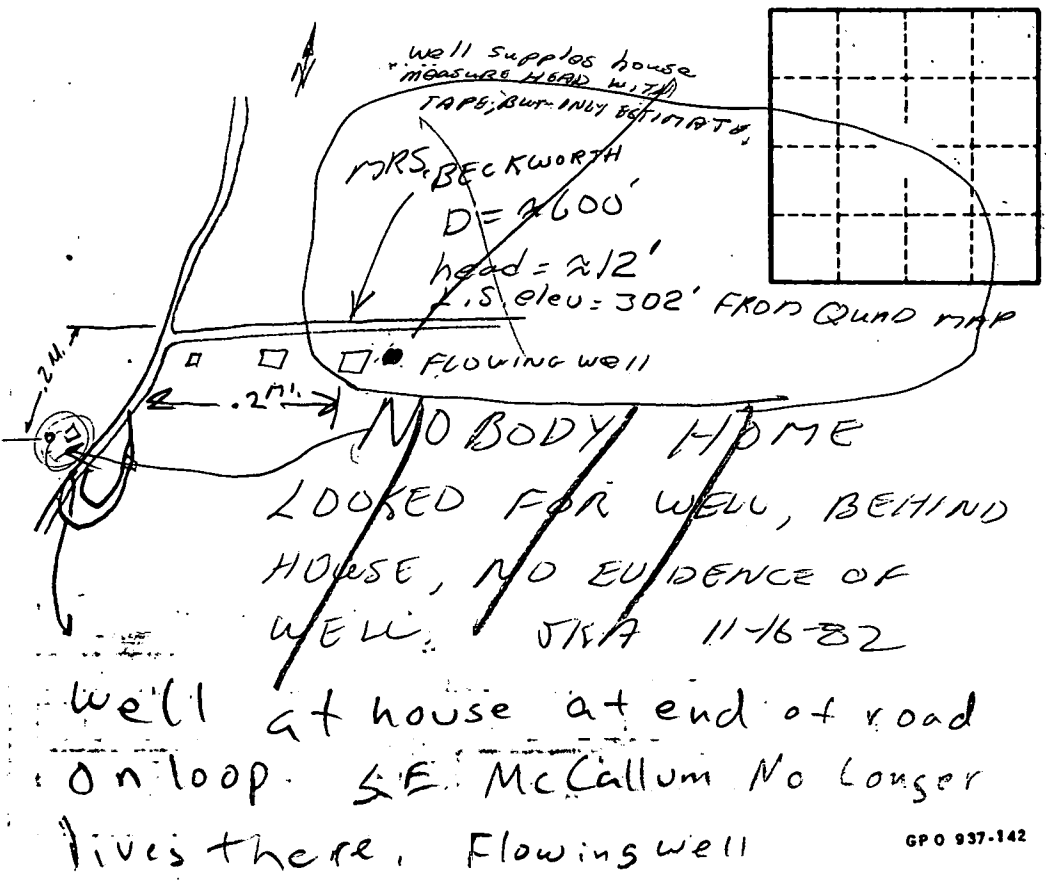 N
well supples house
MEASURE HEAD WITH
TAPE, BUT ONLY ESTIMATE.
MRS. BECKWORTH
D = ≈600'
head = ≈12'
L.S. elev = 302' FROM QUAD MAP
FLOWING WELL
.2 M.
.2 MI.
NO BODY HOME
LOOKED FOR WELL, BEHIND
HOUSE, NO EVIDENCE OF
WELL. JKA 11-16-82
well at house at end of road
on loop. S.E. McCallum No Longer
lives there. Flowing well
GPO 937-142